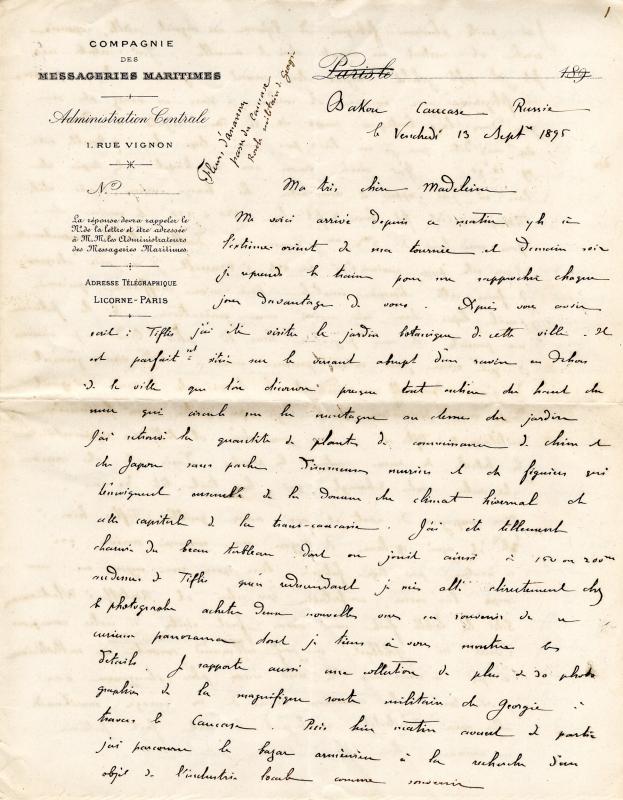 1
COMPAGNIE
DES
MESSAGERIES MARITIMES
Administration Centrale
1, RUE VIGNON
N.o
La réponse devra rappeler le
No. de la lettre et être adressée
à M.M. les Administrateurs
des Messageries Maritimes.
ADRESSE TÉLÉGRAPHIQUE
LICORNE-PARIS
Fleurs d'Ananour
passe du Caucase
Route militaire de Géorgie
Paris, le 189
Bakou Caucase Russie
le Vendredi 13 Septre 1895
Ma très chère Madeleine
Me voici arrivé depuis ce matin 4h à
l'extrême orient de ma tournée et demain soir
je reprends le train pour me rapprocher chaque
jour davantage de vous. Après vous avoir
écrit à Tiflis j'ai été visiter le jardin botanique de cette ville. Il
est parfaitemt situé sur le versant abrupt d'un ravin en dehors
de la ville que l'on découvre presque tout entière du haut du
mur qui circule sur la montagne au dessus du jardin
J'ai retrouvé là quantité de plantes de connaissance de Chine et
du Japon sans parler d'immenses muriers et de figuiers qui
témoignent ensemble de la douceur du climat hivernal de
cette capitale de la trans-caucasie. J'ai été tellement
charmé du beau tableau dont on jouit ainsi à 150 ou 200m
au dessus de Tiflis qu'en redescendant je suis allé directement chez
le photographe acheter deux nouvelles vues en souvenir de ce
curieux panorama dont je tiens à vous montrer les
détails. Je rapporte aussi une collection de plus de 30 photo
graphies de la magnifique route militaire de Géorgie à
travers le Caucase. Puis hier matin avant de partir
j'ai parcouru le bazar arménien à la recherche d'un
objet de l'industrie locale comme souvenir